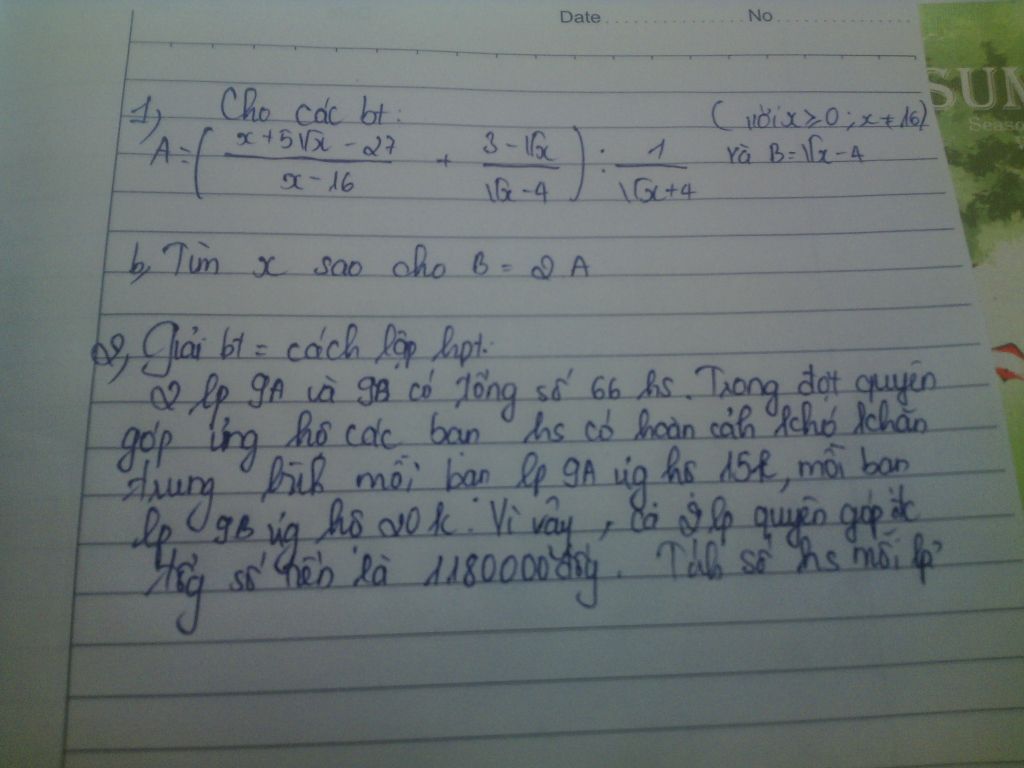 Date No
SUM
Seaso
1, Cho các bt: (với x ≥ 0 ; x ≠ 16)
A = ( (x + 5√x - 27)/(x - 16) + (3 - √x)/(√x - 4) ) : 1/(√x + 4) và B = √x - 4
b, Tìm x sao cho B = 2 A
2, Giải bt = cách lập hpt:
2 lp 9A và 9B có tổng số 66 hs. Trong đợt quyên
góp ủng hộ các bạn hs có hoàn cảnh khó khăn
trung bình mỗi bạn lp 9A ủg hộ 15k, mỗi bạn
lp 9B ủg hộ 20k. Vì vậy, cả 2 lp quyên góp đc
tổg số tiền là 1180000 đồg. Tính số hs mỗi lp